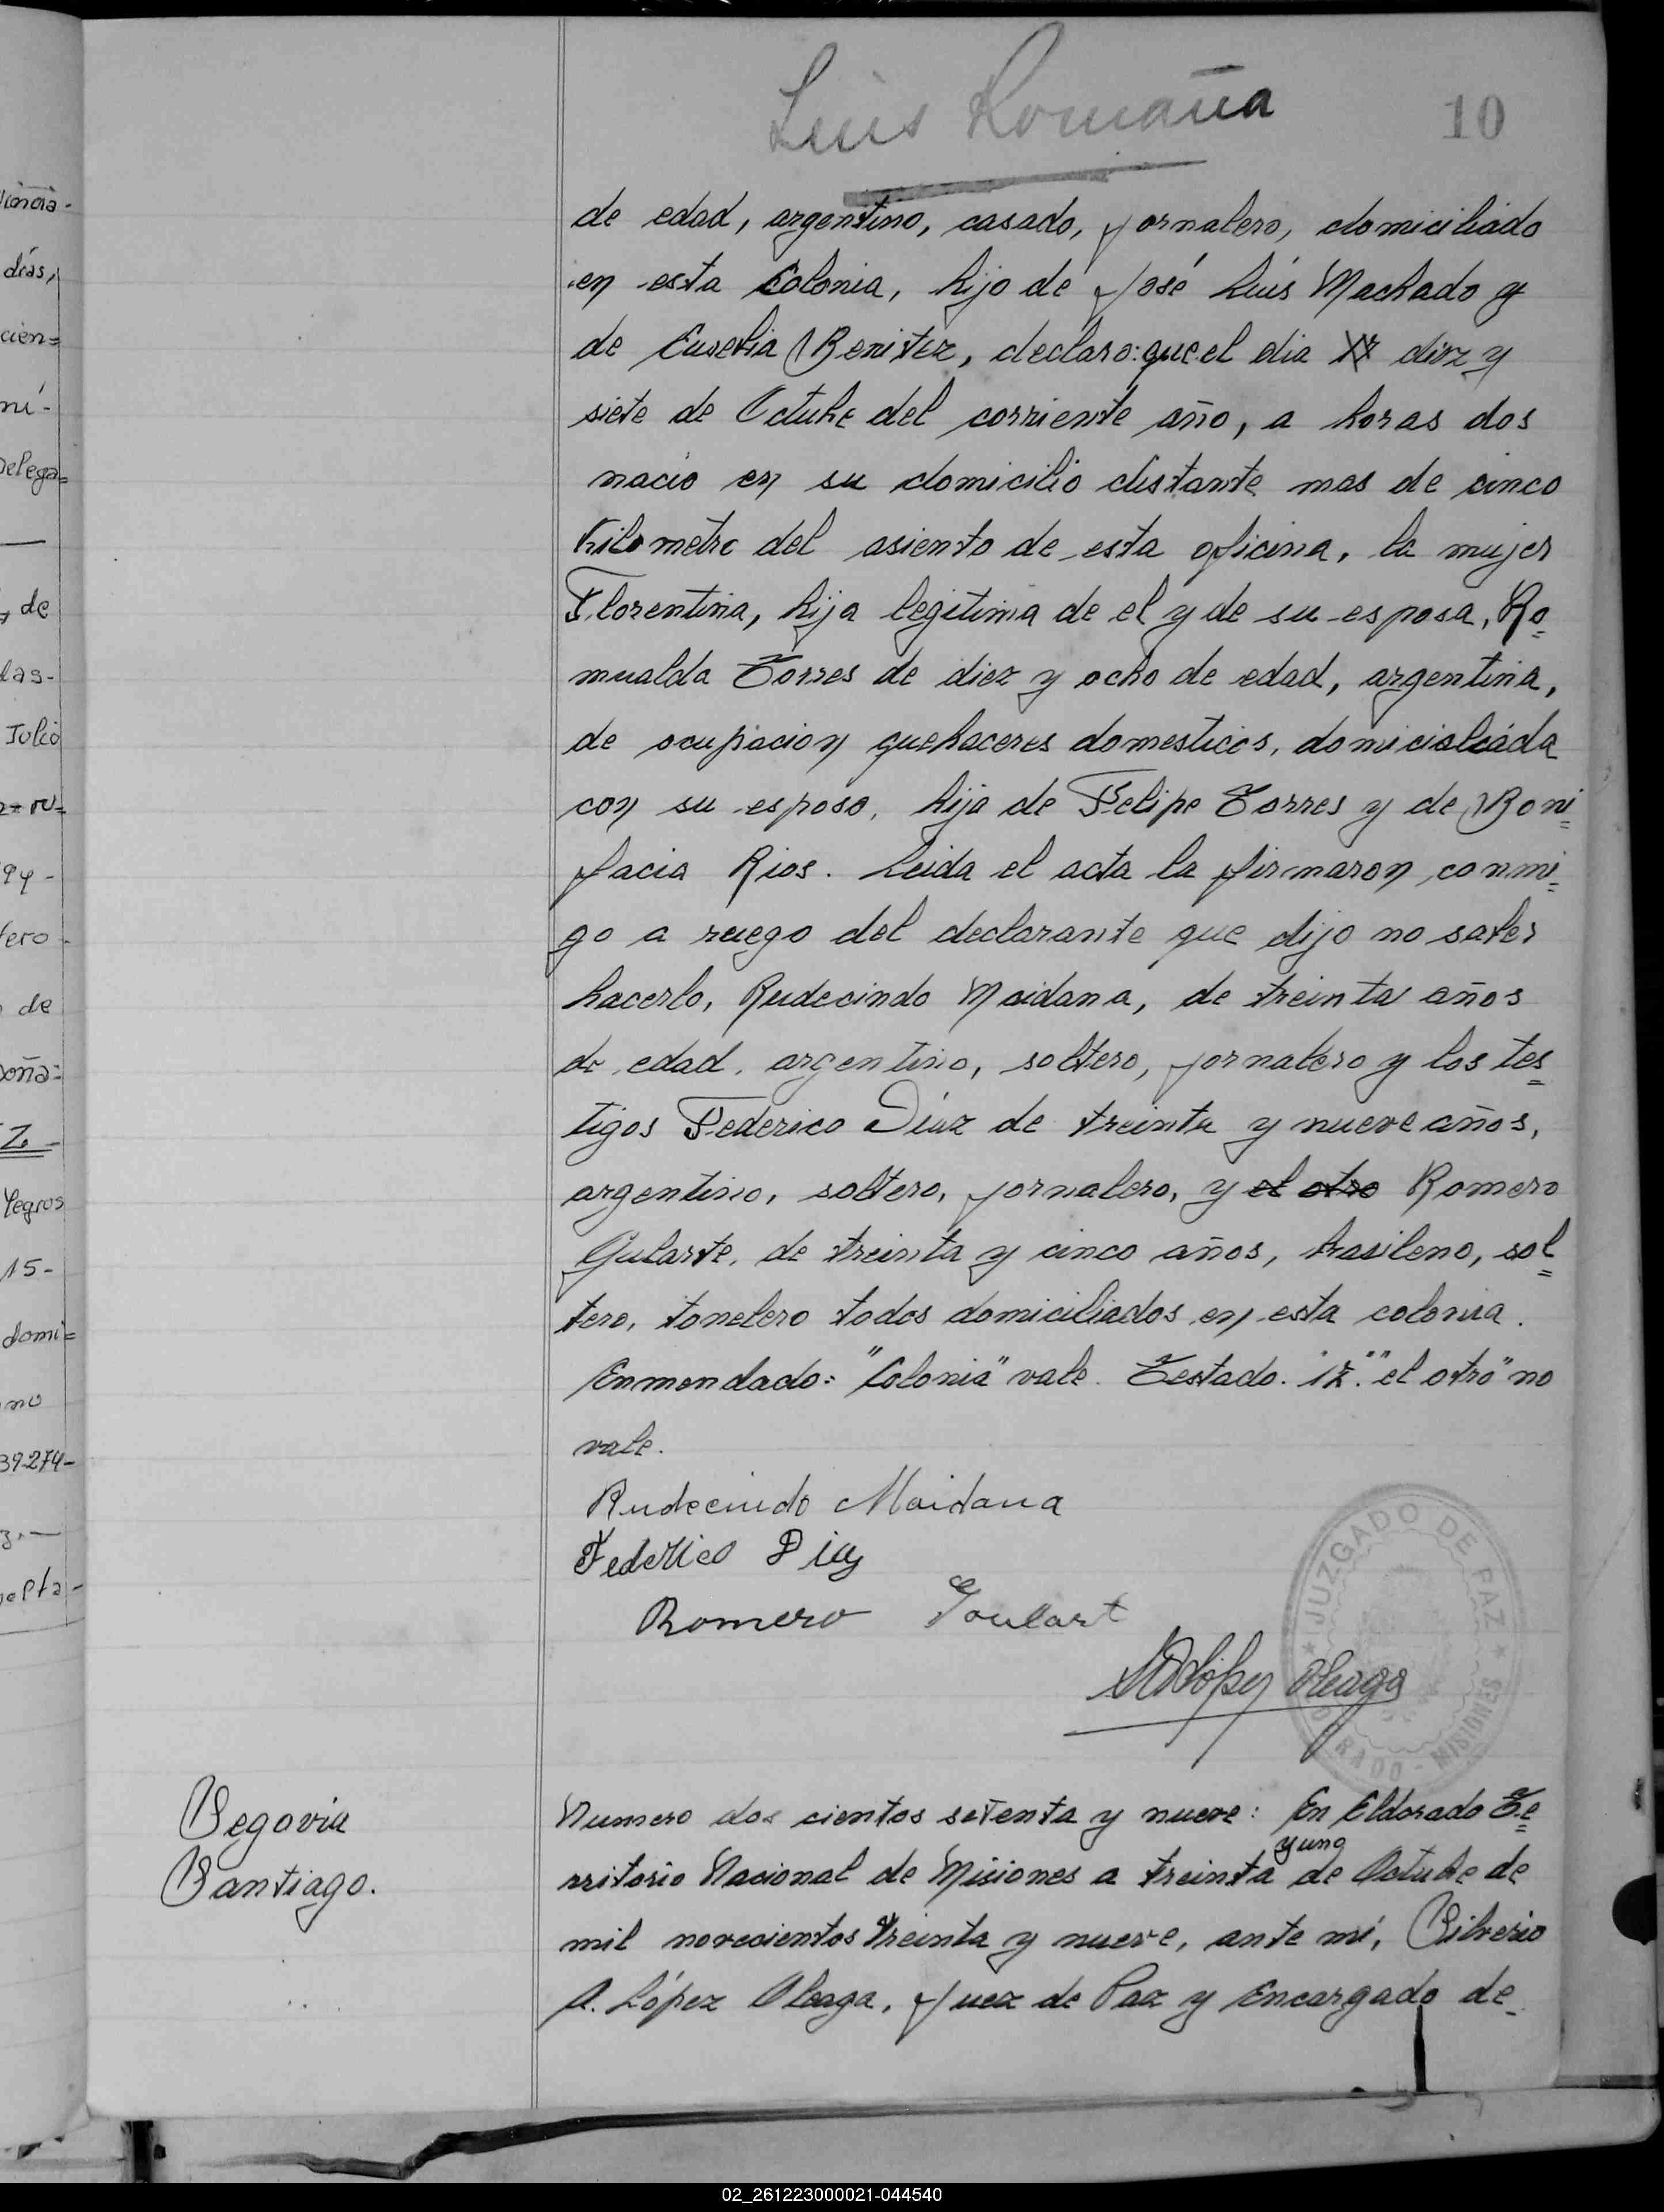 Luis Romaña
10
de edad, argentino, casado, jornalero, domiciliado
en esta Colonia, hijo de José Luis Machado y
de Eusebia Benitez, declaro: que el dia diez y
siete de Octubre del corriente año, a horas dos
nacio en su domicilio distante mas de cinco
kilometro del asiento de esta oficina, la mujer
Florentina, hija legitima de el y de su esposa, Ro=
mualda Torres de diez y ocho de edad, argentina,
de ocupacion quehaceres domesticos, domicialiada
con su esposo, hija de Felipe Torres y de Boni=
facia Rios. Leida el acta la firmaron, conmi=
go a ruego del declarante que dijo no saber
hacerlo, Rudecindo Maidana, de treinta años
de edad, argentino, soltero, jornalero y los tes=
tigos Federico Diaz de treinta y nueve años,
argentino, soltero, jornalero, y el otro Romero
Gularte, de treinta y cinco años, brasileno, sol=
tero, tonelero todos domiciliados en esta colonia.
Enmendado: "Colonia" vale. Testado. "el otro" no
vale.
Rudecindo Maidana
Federico Diaz
Romero Goulart
López Aleaga
JUZGADO DE PAZ
ELDORADO - MISIONES
Segovia
Santiago.
Numero dos cientos setenta y nueve: En Eldorado Te=
rritorio Nacional de Misiones a treinta y uno de Octubre de
mil novecientos treinta y nueve, ante mí, Silverio
A. López Aleaga, Juez de Paz y Encargado de
dias,
cien=
ni-
Delega=
, de
las-
Julio
94-
tero
de
Z-
15-
domi=
no
39274-
02_261223000021-044540